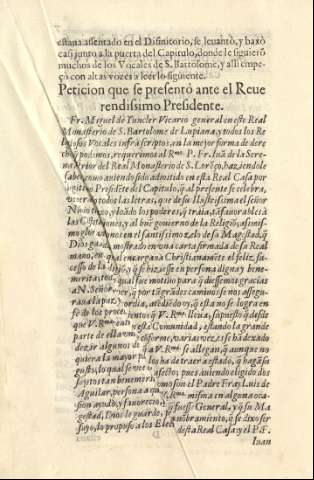 estaua assentado en el Difinitorio, se leuantò, y baxò
casi junto a la puerta del Capitulo, donde le siguierõ
muchos de los Vocales de S. Bartolome, y alli empe
çò con altas vozes a leer lo siguiente.
Peticion que se presentò ante el Reue
rendissimo Presidente.
Fr. Miguel de Yuncler Vicario general en este Real
Monasterio de S. Bartolome de Lupiana, y todos los Re
ligiosos Vocales infrascriptos, en la mejor forma de dere
cho podimos, y requerimos al Rmo. P. Fr. Iuã de la Sere
na Prior del Real Monasterio de S. Lorẽço, haziendole
saber como auiendo sido admitido en esta Real Casa por
Presidẽte del Capitulo, q̃ al presente se celebra,
todos las letras, que de su Ilustrissima el señor
Nuncio y loado los poderes, q̃ traia, tã fauorables à
las Capitanes, y al buẽ gouierno de la Religiõ, assimis
mo en el santissimo zelo de su Magestad, q̃
Dios mostrado en vna carta firmada de su Real
mano, en que encargana Christianamẽte el feliz, su
cesso de la y q̃ se hiziesse en persona digna y bene
merita, qual fue motiuo para q̃ diessemos gracias
a N. Señor q̃ por tã grandes caminos se nos assegu
rana la paz, atẽdiẽdo, q̃ esta no se logra en
fè de los q̃ V. Rma. lleua, supuesto q̃ desde
que V. Rma. esta Comunidad, estando la grande
parte de ella conforme, varias vezes se hà dexado
dezir algunos de V. Rma. se allegan, q̃ aunque no
quiera la mayor lo ha de traer à estado, q̃ haga su
gusto, lo qual afectos pues auiendo elegido dos
sujetos tan beneme como son el Padre Fray Luis de
Aguilar, persona a q̃ misma en alguna oca
sion ayudò, y fauoreciò q̃ fuesse General, y q̃ su Ma
gestad, Dios le guarde, nombramiento, q̃ se dixo ser
suyo, lo propuso a los Elect desta Real Casa y el P. F.
Iuan